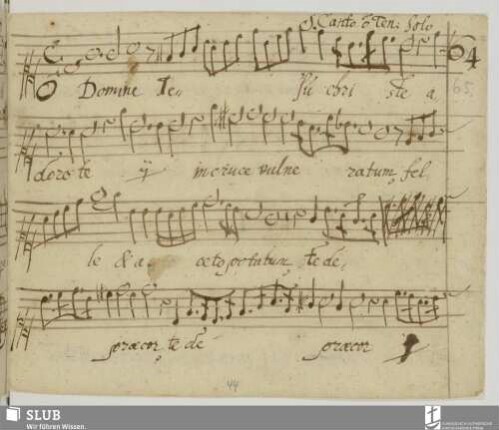 Canto ò Ten: Solo
64
65.
O Domine Ie su chri ste a
doro te ij in cruce vulne ratum, fel
le & a ceto potatum, te de,
præcor, te de præcor
44
SLUB
Wir führen Wissen.